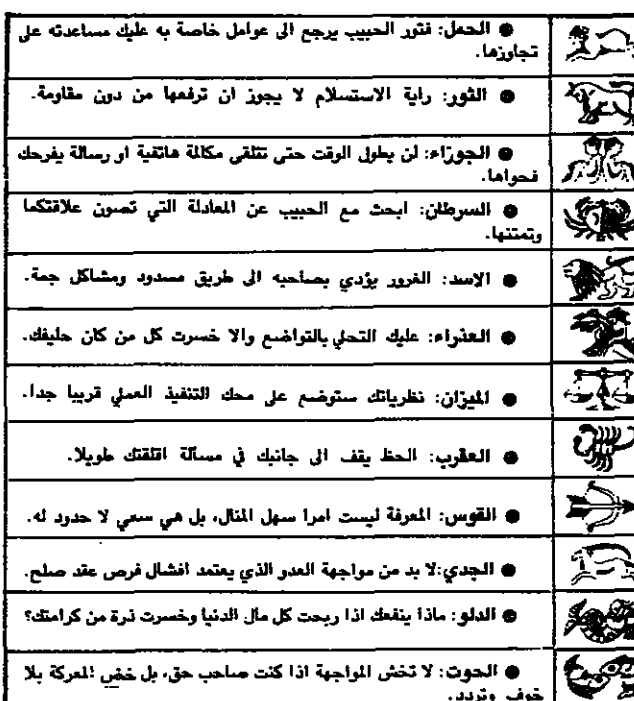 ● الحمل: فتور الحبيب يرجع الى عوامل خاصة به عليك مساعدته على
تجاوزها.
● الثور: راية الاستسلام لا يجوز ان ترفعها من دون مقاومة.
● الجوزاء: لن يطول الوقت حتى تتلقى مكالمة هاتفية او رسالة يفرحك
فحواها.
● السرطان: ابحث مع الحبيب عن المعادلة التي تصون علاقتكما
وتمتنها.
● الاسد: الغرور يؤدي بصاحبه الى طريق مسدود ومشاكل جمة.
● العذراء: عليك التحلي بالتواضع والا خسرت كل من كان حليفك.
● الميزان: نظرياتك ستوضع على محك التنفيذ العملي قريبا جدا.
● العقرب: الحظ يقف الى جانبك في مسألة اقلقتك طويلا.
● القوس: المعرفة ليست امرا سهل المنال، بل هي سعي لا حدود له.
● الجدي: لا بد من مواجهة العدو الذي يعتمد افشال فرص عقد صلح.
● الدلو: ماذا ينفعك اذا ربحت كل مال الدنيا وخسرت ذرة من كرامتك؟
● الحوت: لا تخش المواجهة اذا كنت صاحب حق، بل خض المعركة بلا
خوف وتردد.